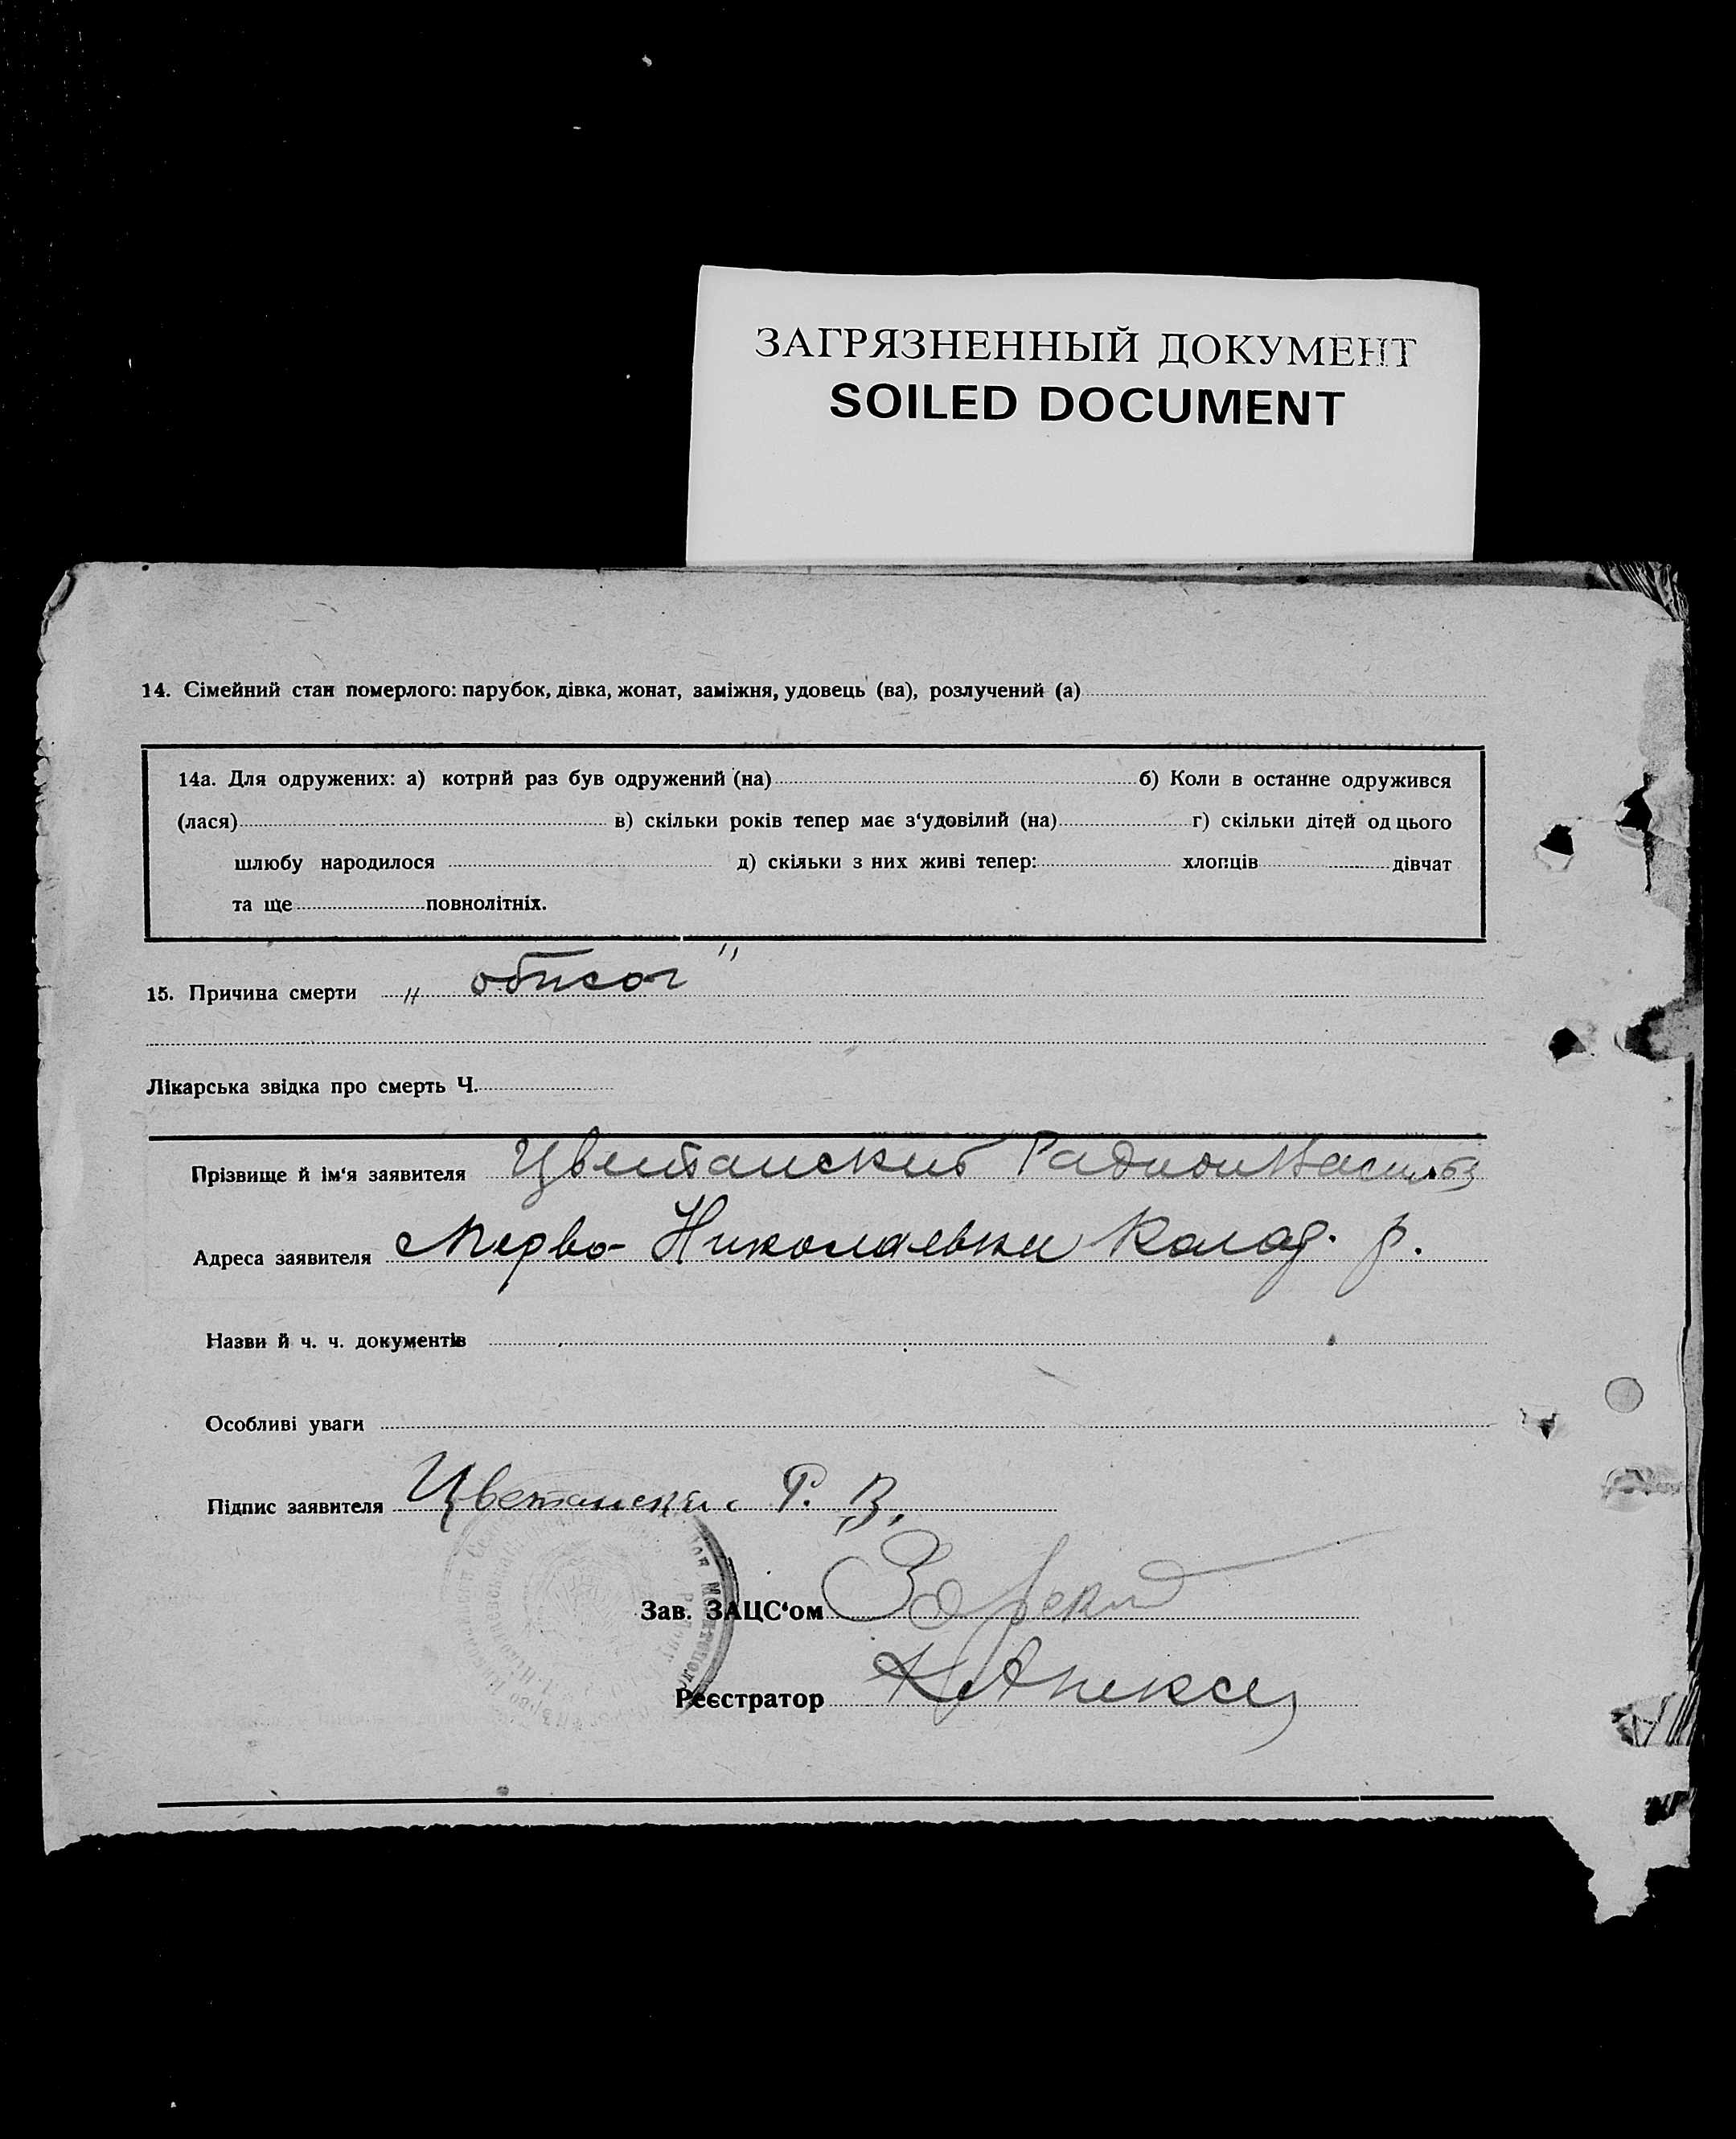 ЗАГРЯЗНЕННЫЙ ДОКУМЕНТ
SOILED DOCUMENT
14. Сімейний стан померлого: парубок, дівка, жонат, заміжня, удовець (ва), розлучений (а)
14а. Для одружених: а) котрий раз був одружений (на) б) Коли в останнє одружився
(лася) в) скільки років тепер має з‘удовілий (на) г) скільки дітей од цього
шлюбу народилося д) скільки з них живі тепер: хлопців дівчат
та ще повнолітніх.
15. Причина смерти
Лікарська звідка про смерть Ч.
Прізвище й ім‘я заявителя Цветанский Радион
Адреса заявителя Перво-Николаевка р.
Назви й ч. ч. документів
Особливі уваги
Підпис заявителя Р. В.
Зав. ЗАЦС‘ом
Реєстратор